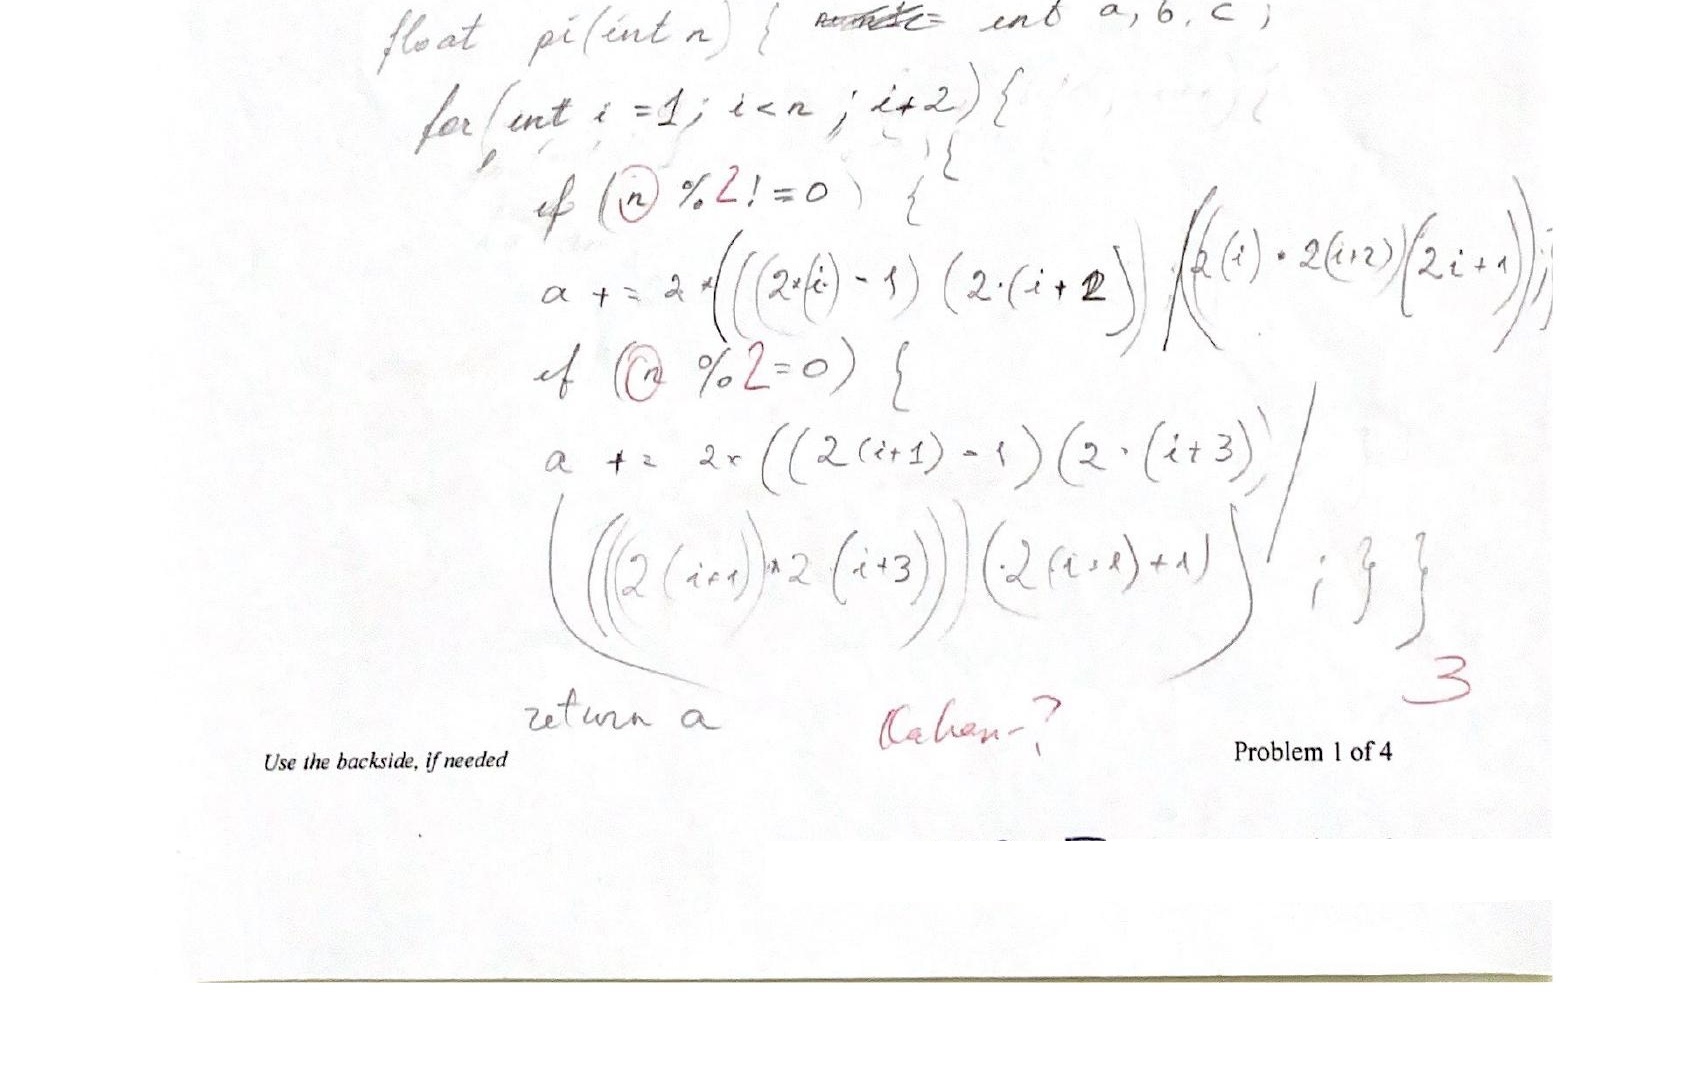 float pi(int n) { int a, b, c ;
for(int i =1; i<n ; i+2){
{
if (n %2!=0) {
a += 2*(((2*(i) - 1) (2·(i+2)) /((2(i) · 2(i+2))(2i+1));
if (n %2=0) {
a += 2* ((2(i+1) - 1)(2·(i+3) /
(((2(i+1))*2(i+3)))(2(i+1)+1) ; } }
3
return a Kahan-?
Use the backside, if needed Problem 1 of 4